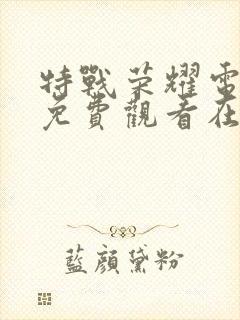 特戰荣耀電
免費觀看在
藍顔黛粉